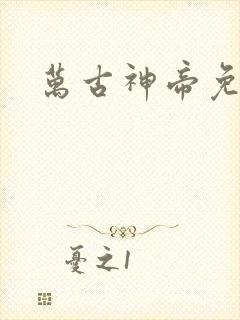 萬古神帝免
憂之1